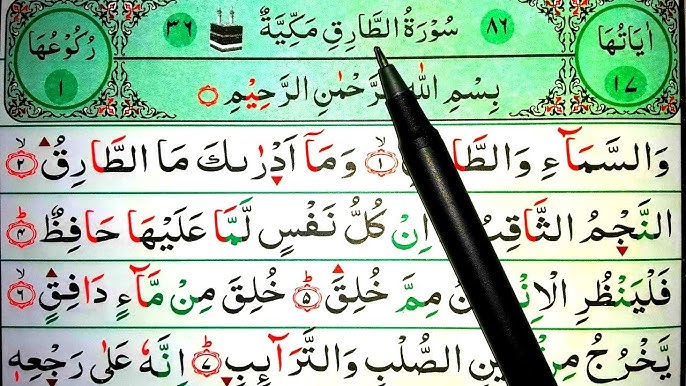 اٰيَاتُهَا ١٧
٨٦ سُوْرَةُ الطَّارِقِ مَكِّيَّةٌ ٣٦
رُكُوْعُهَا ١
بِسْمِ اللهِ الرَّحْمٰنِ الرَّحِيْمِ
وَالسَّمَآءِ ١ وَمَآ اَدْرٰىكَ مَا الطَّارِقُ ٢
النَّجْمُ الثَّاقِبُ اِنْ كُلُّ نَفْسٍ لَّمَّا عَلَيْهَا حَافِظٌ ٤
فَلْيَنْظُرِ مِمَّ خُلِقَ ٥ خُلِقَ مِنْ مَّآءٍ دَافِقٍ ٦
يَّخْرُجُ مِنْۢ الصُّلْبِ وَالتَّرَآئِبِ ٧ اِنَّهٗ عَلٰى رَجْعِهٖ